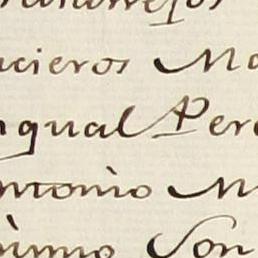 ncieros Ma
nqual Pere
ntonio M
nimo Son